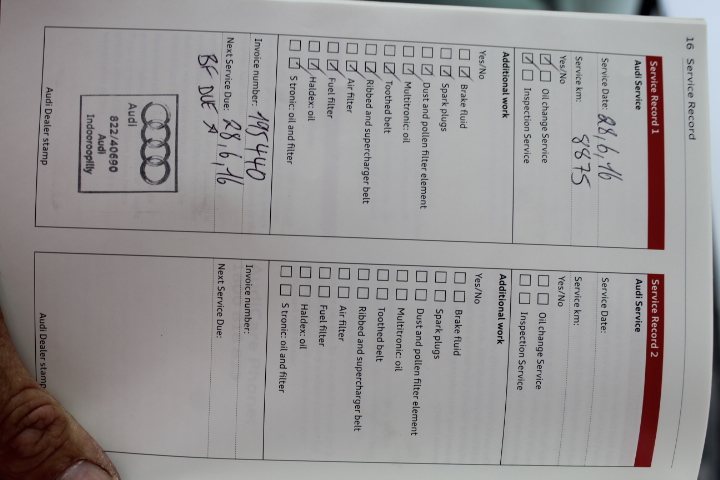 16 Service Record
Service Record 1
Audi Service
Service Date: 28,6,16
Service km: 8875
Yes/No
Oil change Service
Inspection Service
Additional work
Yes/No
Brake fluid
Spark plugs
Dust and pollen filter element
Multitronic: oil
Toothed belt
Ribbed and supercharger belt
Air filter
Fuel filter
Haldex: oil
S tronic: oil and filter
Invoice number: 195440
Next Service Due: 28,6,16
BF DUE
Audi
822/40690
Audi
Indooroopilly
Audi Dealer stamp
Service Record 2
Audi Service
Service Date:
Service km:
Yes/No
Oil change Service
Inspection Service
Additional work
Yes/No
Brake fluid
Spark plugs
Dust and pollen filter element
Multitronic: oil
Toothed belt
Ribbed and supercharger belt
Air filter
Fuel filter
Haldex: oil
S tronic: oil and filter
Invoice number:
Next Service Due:
Audi Dealer stamp